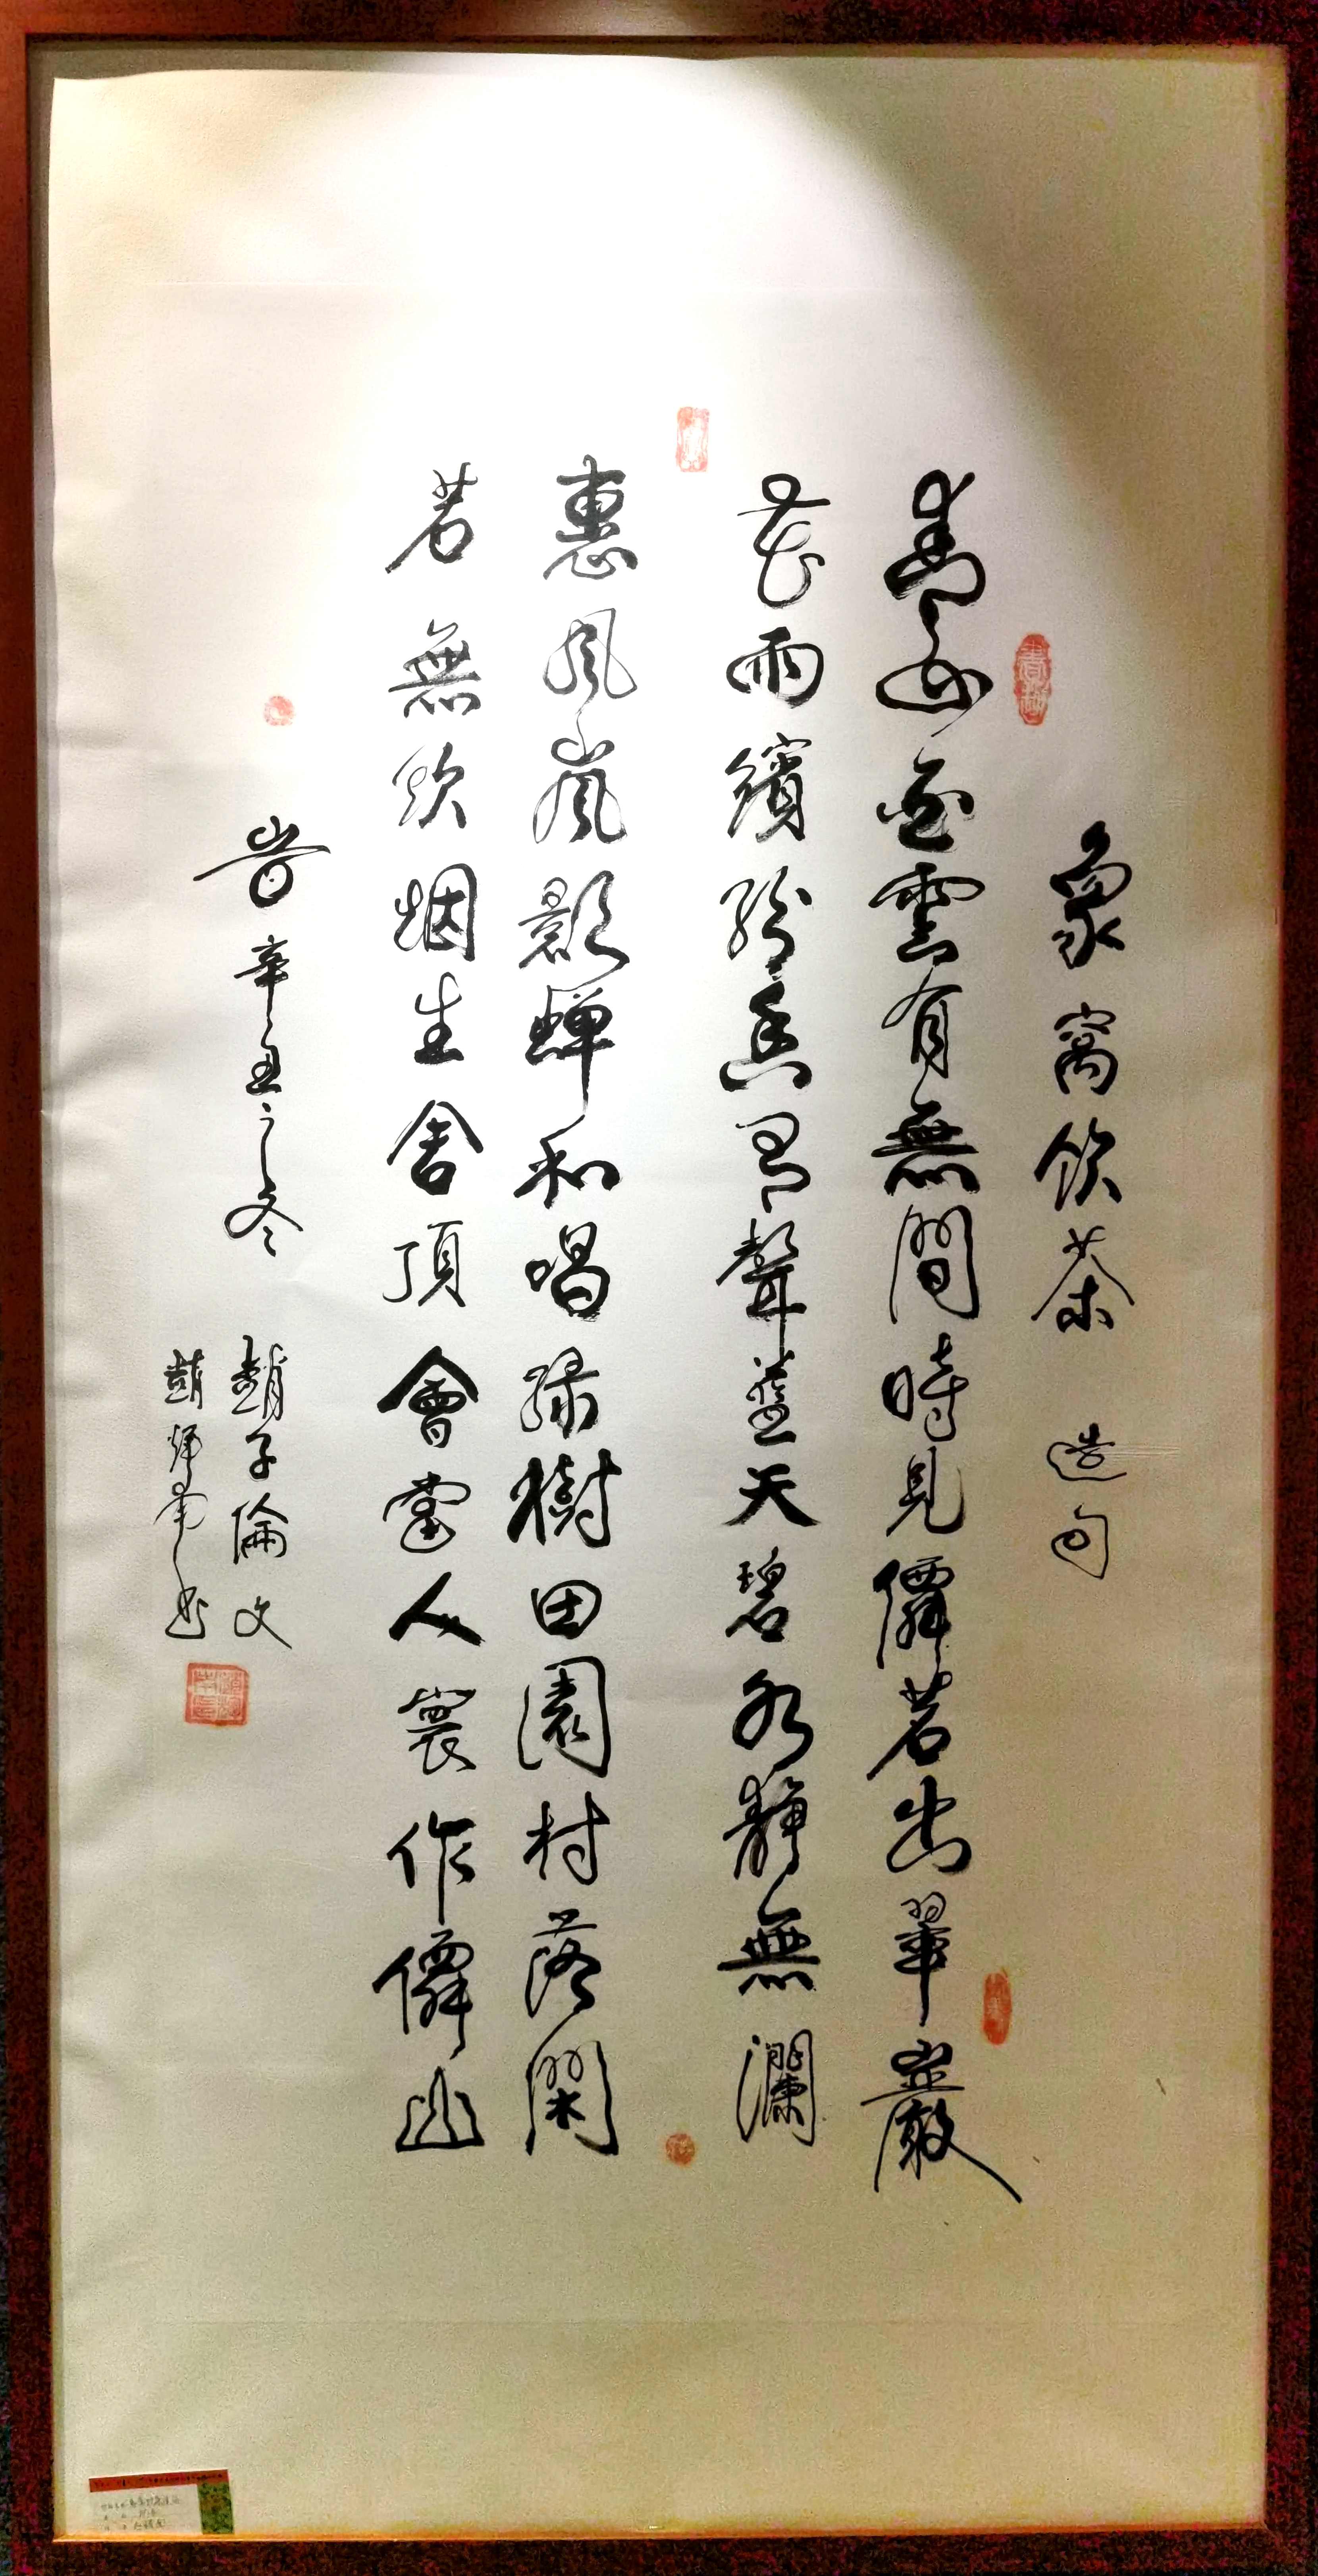 象窩飲茶 造句
青山雲有無間時見僊茗出翠巖
花雨繽紛香聲藍天碧水靜無瀾
惠風嵐影蟬和唱綠樹田園村落閑
若無炊烟生舍頂會當人寰作僊山
旹辛丑之冬 趙子倫文
趙書